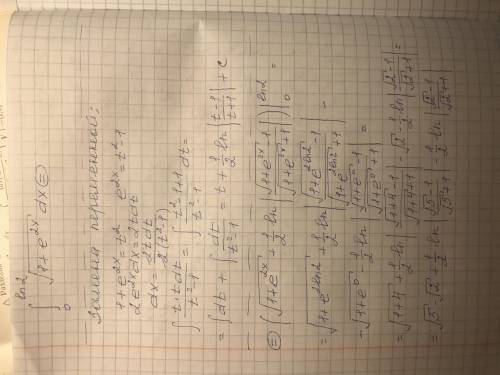 ∫₀^{ln2} √(1+e^{2x}) dx ⊜
Замена переменной:
1+e^{2x}=t²   e^{2x}=t²-1
2e^{2x}dx=2tdt
dx = 2tdt / 2(t²-1)
∫ t·tdt / (t²-1) = ∫ (t²-1+1)/(t²-1) dt =
= ∫dt + ∫ dt/(t²-1) = t + 1/2 ln |(t-1)/(t+1)| + C
⊜ (√(1+e^{2x}) + 1/2 ln |(√(1+e^{2x}) -1)/(√(1+e^{2x}) +1)|) |₀^{ln2} =
= √(1+e^{2ln2}) + 1/2 ln |(√(1+e^{2ln2}) -1)/(√(1+e^{2ln2}) +1)| -
- √(1+e⁰) - 1/2 ln |(√(1+e⁰) -1)/(√(1+e⁰) +1)| =
= √(1+4) + 1/2 ln |(√(1+4) -1)/(√(1+4) +1)| - √2 - 1/2 ln |(√2 -1)/(√2 +1)| =
= √5 - √2 + 1/2 ln |(√5 -1)/(√5 +1)| - 1/2 ln |(√2 -1)/(√2 +1)|